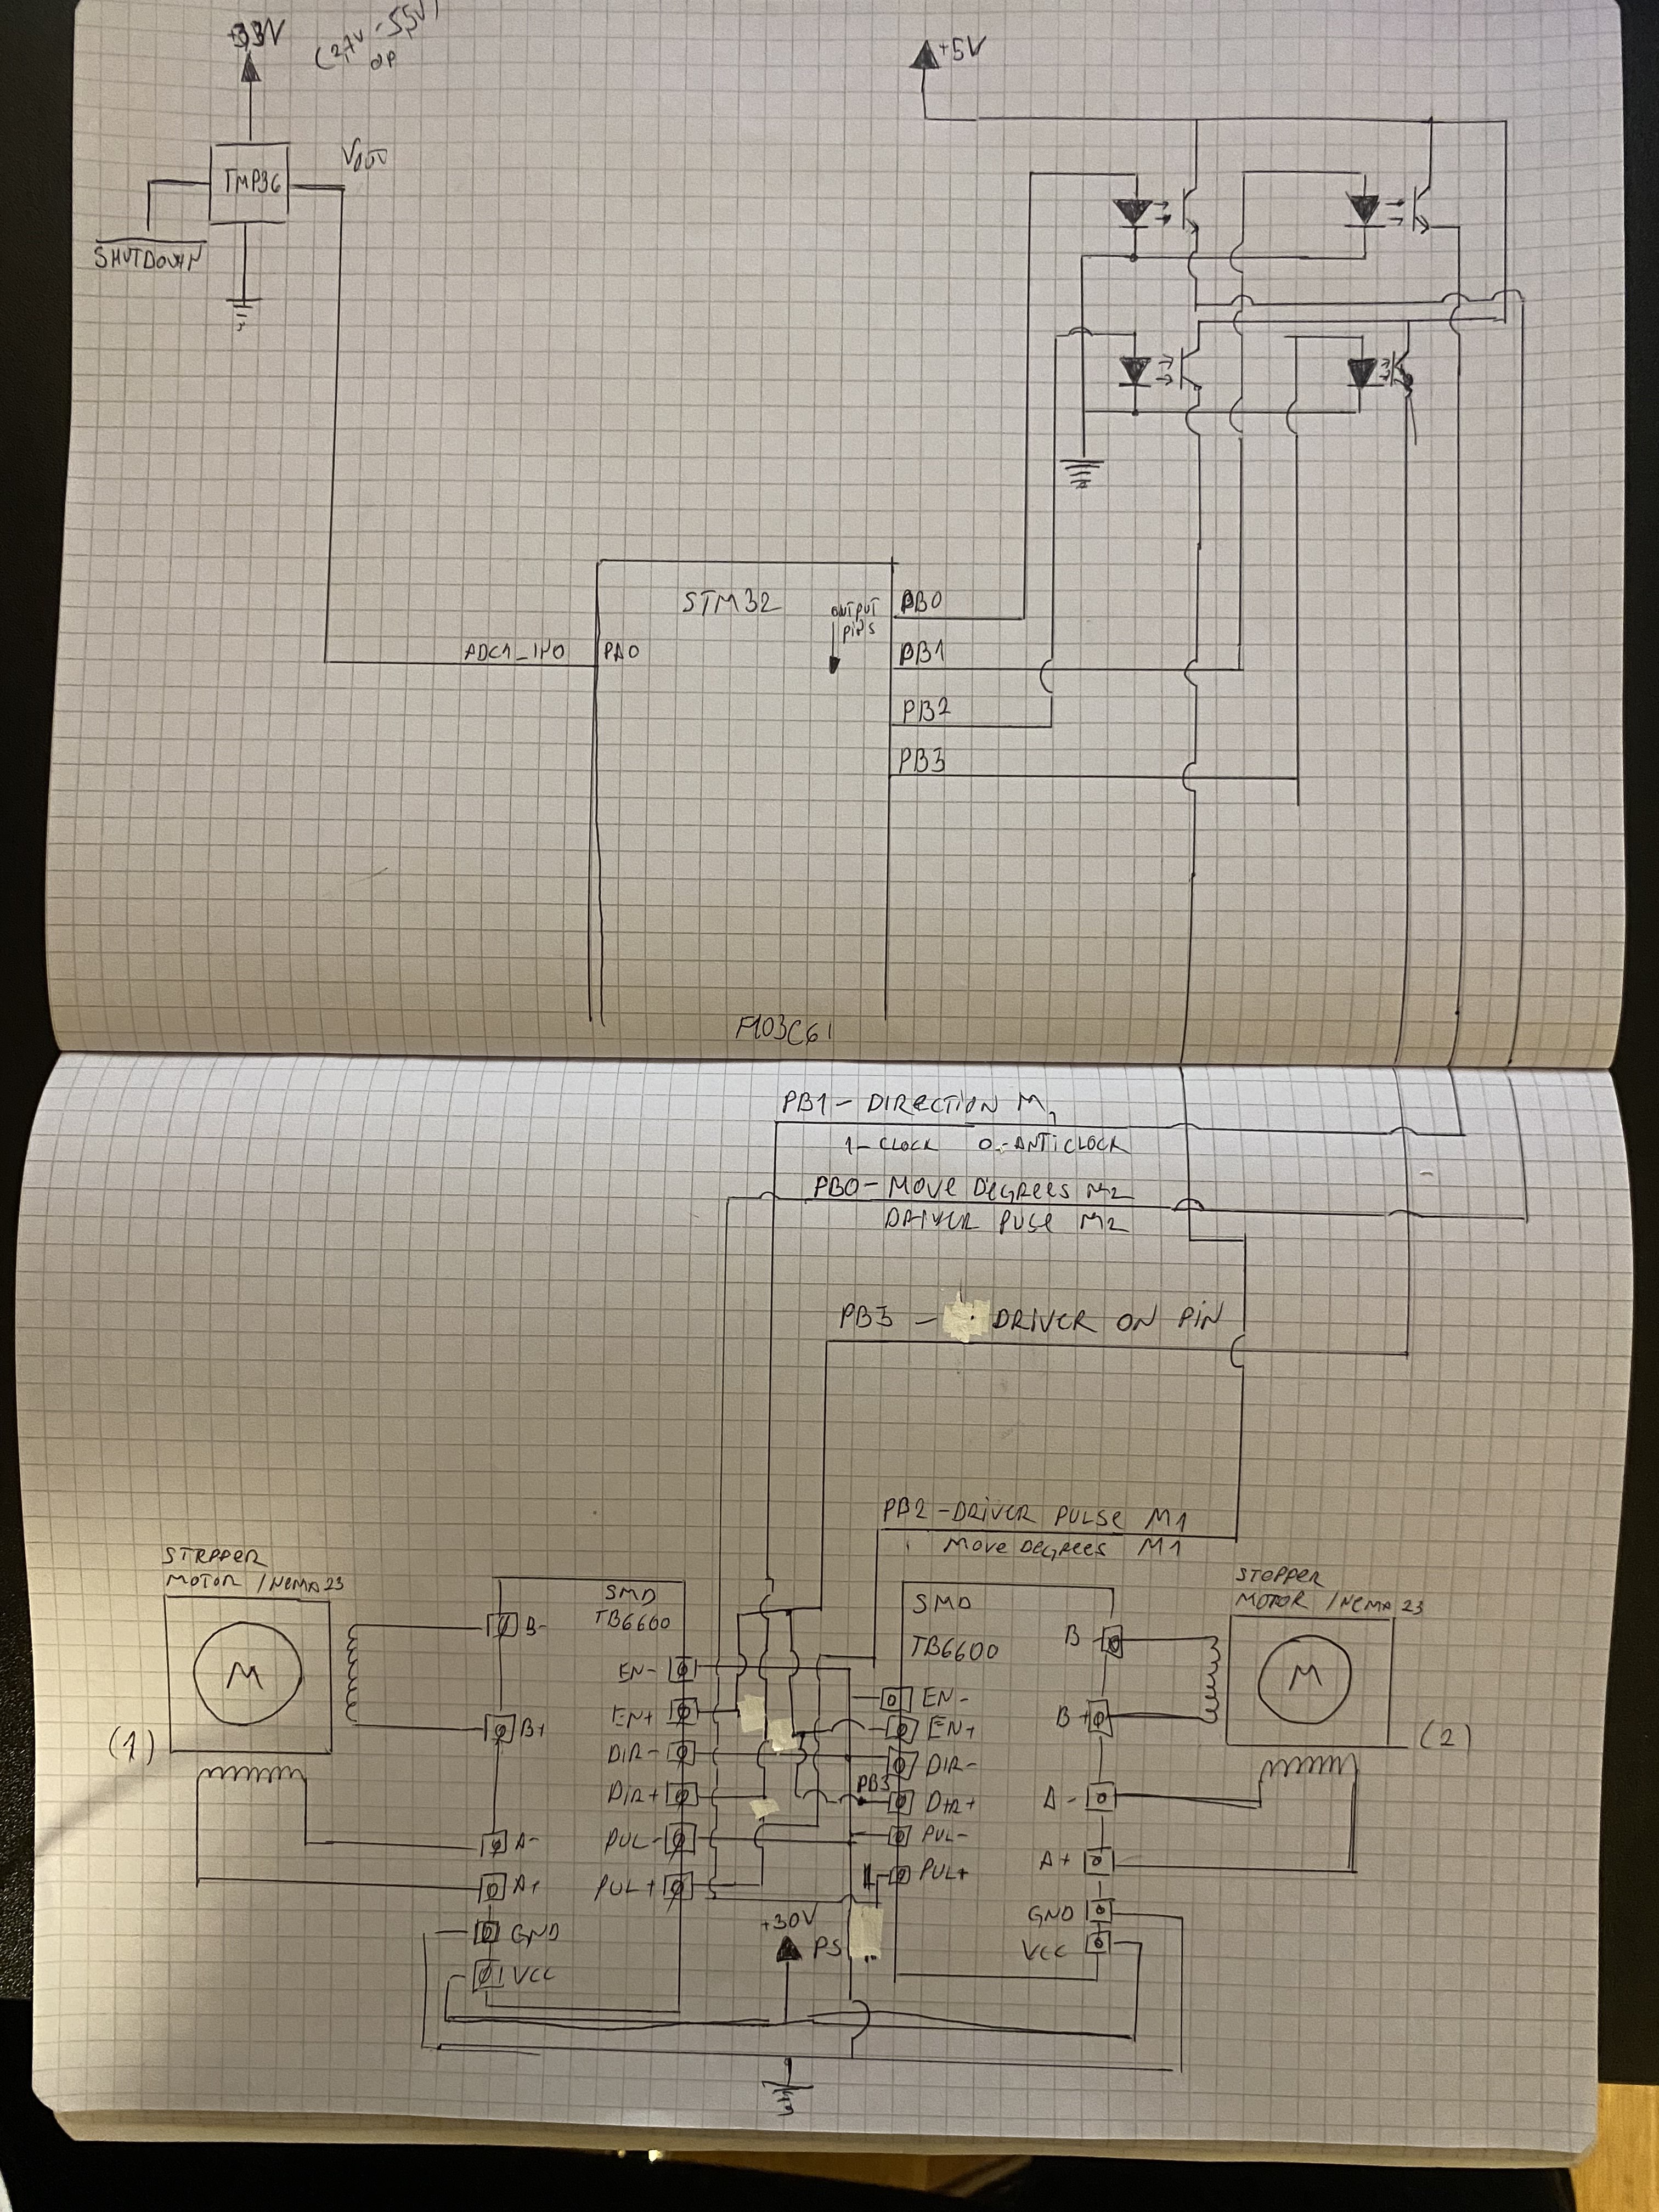 +3,3V
(2,7V - 5,5V)
OP
+5V
TMP36
VOUT
SHUTDOWN
STM32
OUTPUT
PINS
PB0
ADC1_IN0
PA0
PB1
PB2
PB3
F103C6
PB1 - DIRECTION M1
1 - CLOCK 0 - ANTICLOCK
PB0 - MOVE DEGREES M2
DRIVER PUSE M2
PB3 - DRIVER ON PIN
PB2 - DRIVER PULSE M1
MOVE DEGREES M1
STEPPER
MOTOR / NEMA 23
M
(1)
SMD
TB6600
B-
B+
A-
A+
GND
VCC
EN-
EN+
DIR-
DIR+
PUL-
PUL+
SMD
TB6600
EN-
EN+
DIR-
PB3
DIR+
PUL-
PUL+
B-
B+
A-
A+
GND
VCC
STEPPER
MOTOR / NEMA 23
M
(2)
+30V
PS